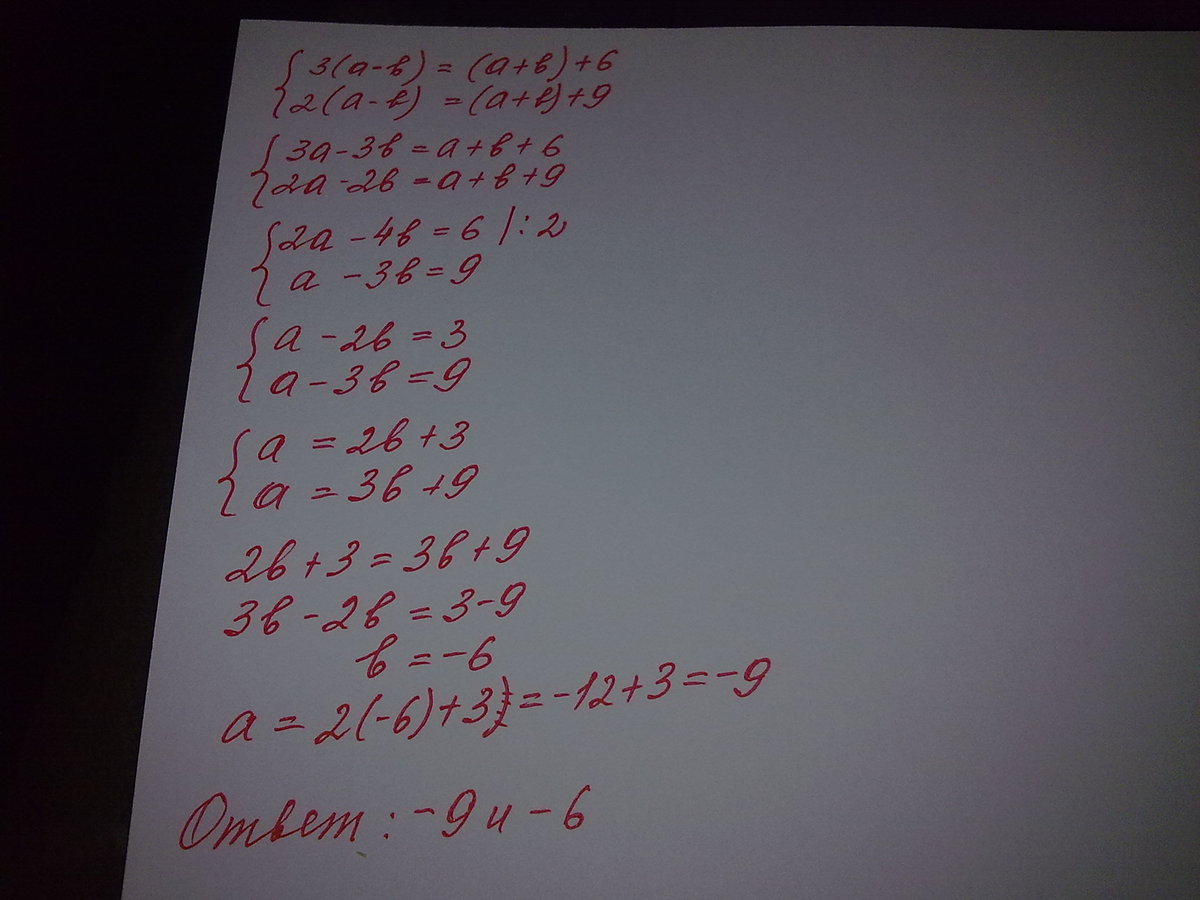 { 3(a-в) = (a+в)+6
2(a-в) = (a+в)+9
{ 3a-3в=a+в+6
2a-2в=a+в+9
{ 2a-4в=6 |:2
a-3в=9
{ a-2в=3
a-3в=9
{ a=2в+3
a=3в+9
2в+3=3в+9
3в-2в=3-9
в=-6
a=2(-6)+3=-12+3=-9
Ответ: -9 и -6